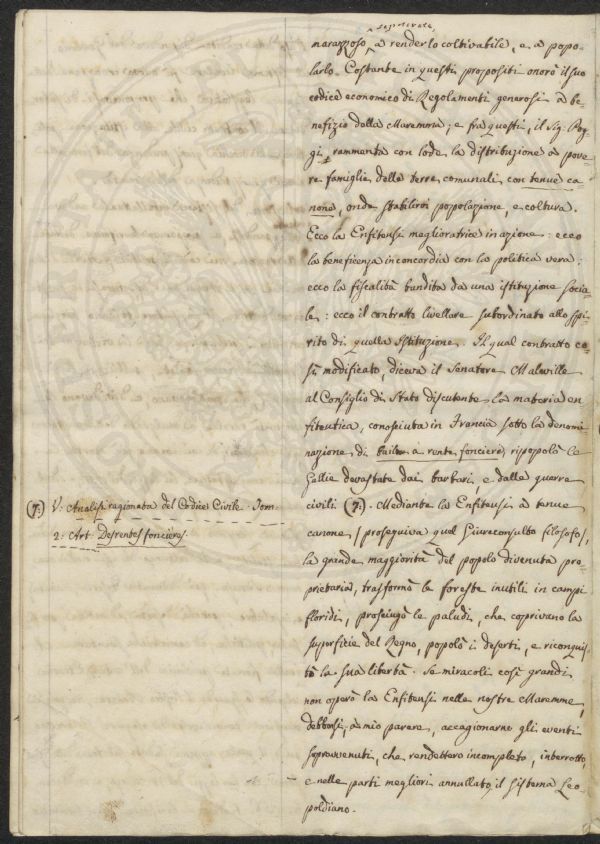 marazzoso, a renderlo coltivabile, e a popo-
larlo. Costante in questi propositi onorò il suo
codice economico di Regolamenti generosi a be-
nefizio della Maremma; e fra questi, il Sig: Pog-
gi, rammenta con lode la distribuzione a pove-
re famiglie delle terre comunali con tenue ca-
none, onde stabilirvi popolazione, e coltura.
Ecco la Enfiteusi miglioratrice in azione: ecco
la beneficenza in concordia con la politica vera:
ecco la fiscalità bandita da una istituzione socia-
le: ecco il contratto livellare subordinato allo spi-
rito di quella Istituzione. Il qual contratto co-
sì modificato, diceva il Senatore Maleville
al Consiglio di Stato discutente la materia en-
fiteutica, conosciuta in Francia sotto la denomi-
nazione di bailer à rente foncière, ripopolò le
Gallie devastate dai barbari e dalle guerre
civili (7:). Mediante la Enfiteusi a tenue
canone (proseguiva quel Giureconsulto filosofo),
la grande maggiorità del popolo divenuta pro-
prietaria, trasformò le foreste inutili in campi
floridi, prosciugò le paludi, che coprivano la
superficie del Regno, popolò i deserti, e riconquis-
tò la sua libertà. Se miracoli così grandi
non operò la Enfiteusi nelle nostre Maremme,
debbonsi, a mio parere, accagionarne gli eventi
sopravvenuti, che rendettero incompleto, interrotto,
e nelle parti migliori annullato il sistema Leo-
poldiano.
(7:) V: Analisi ragionata del Codice Civile. Tom:
2: Art: Des rentes foncières.